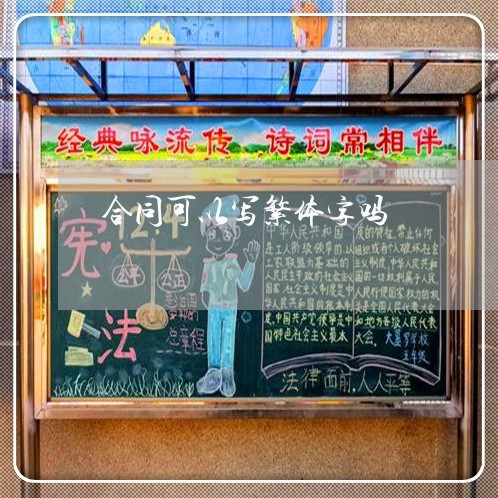 经典咏流传 诗词常相伴
合同可以写繁体字吗
宪法
12.4
公平 公正
总章程
中华人民共和国
是工人阶级领导的,以
工农联盟为基础的人
民民主专政的社会主义
国家.社会主义制度是中
华人民共和国的根本制
度.中国共产党领导是中
国特色社会主义最本
质的特征.禁止任何
组织或者个人破坏社会
主义制度,中华人民共和
国的一切权利属于人民.
人民行使国家权力的机
关是全国人民代表大会
和地方各级人民代表
大会.
学校
五年级
法律面前,人人平等